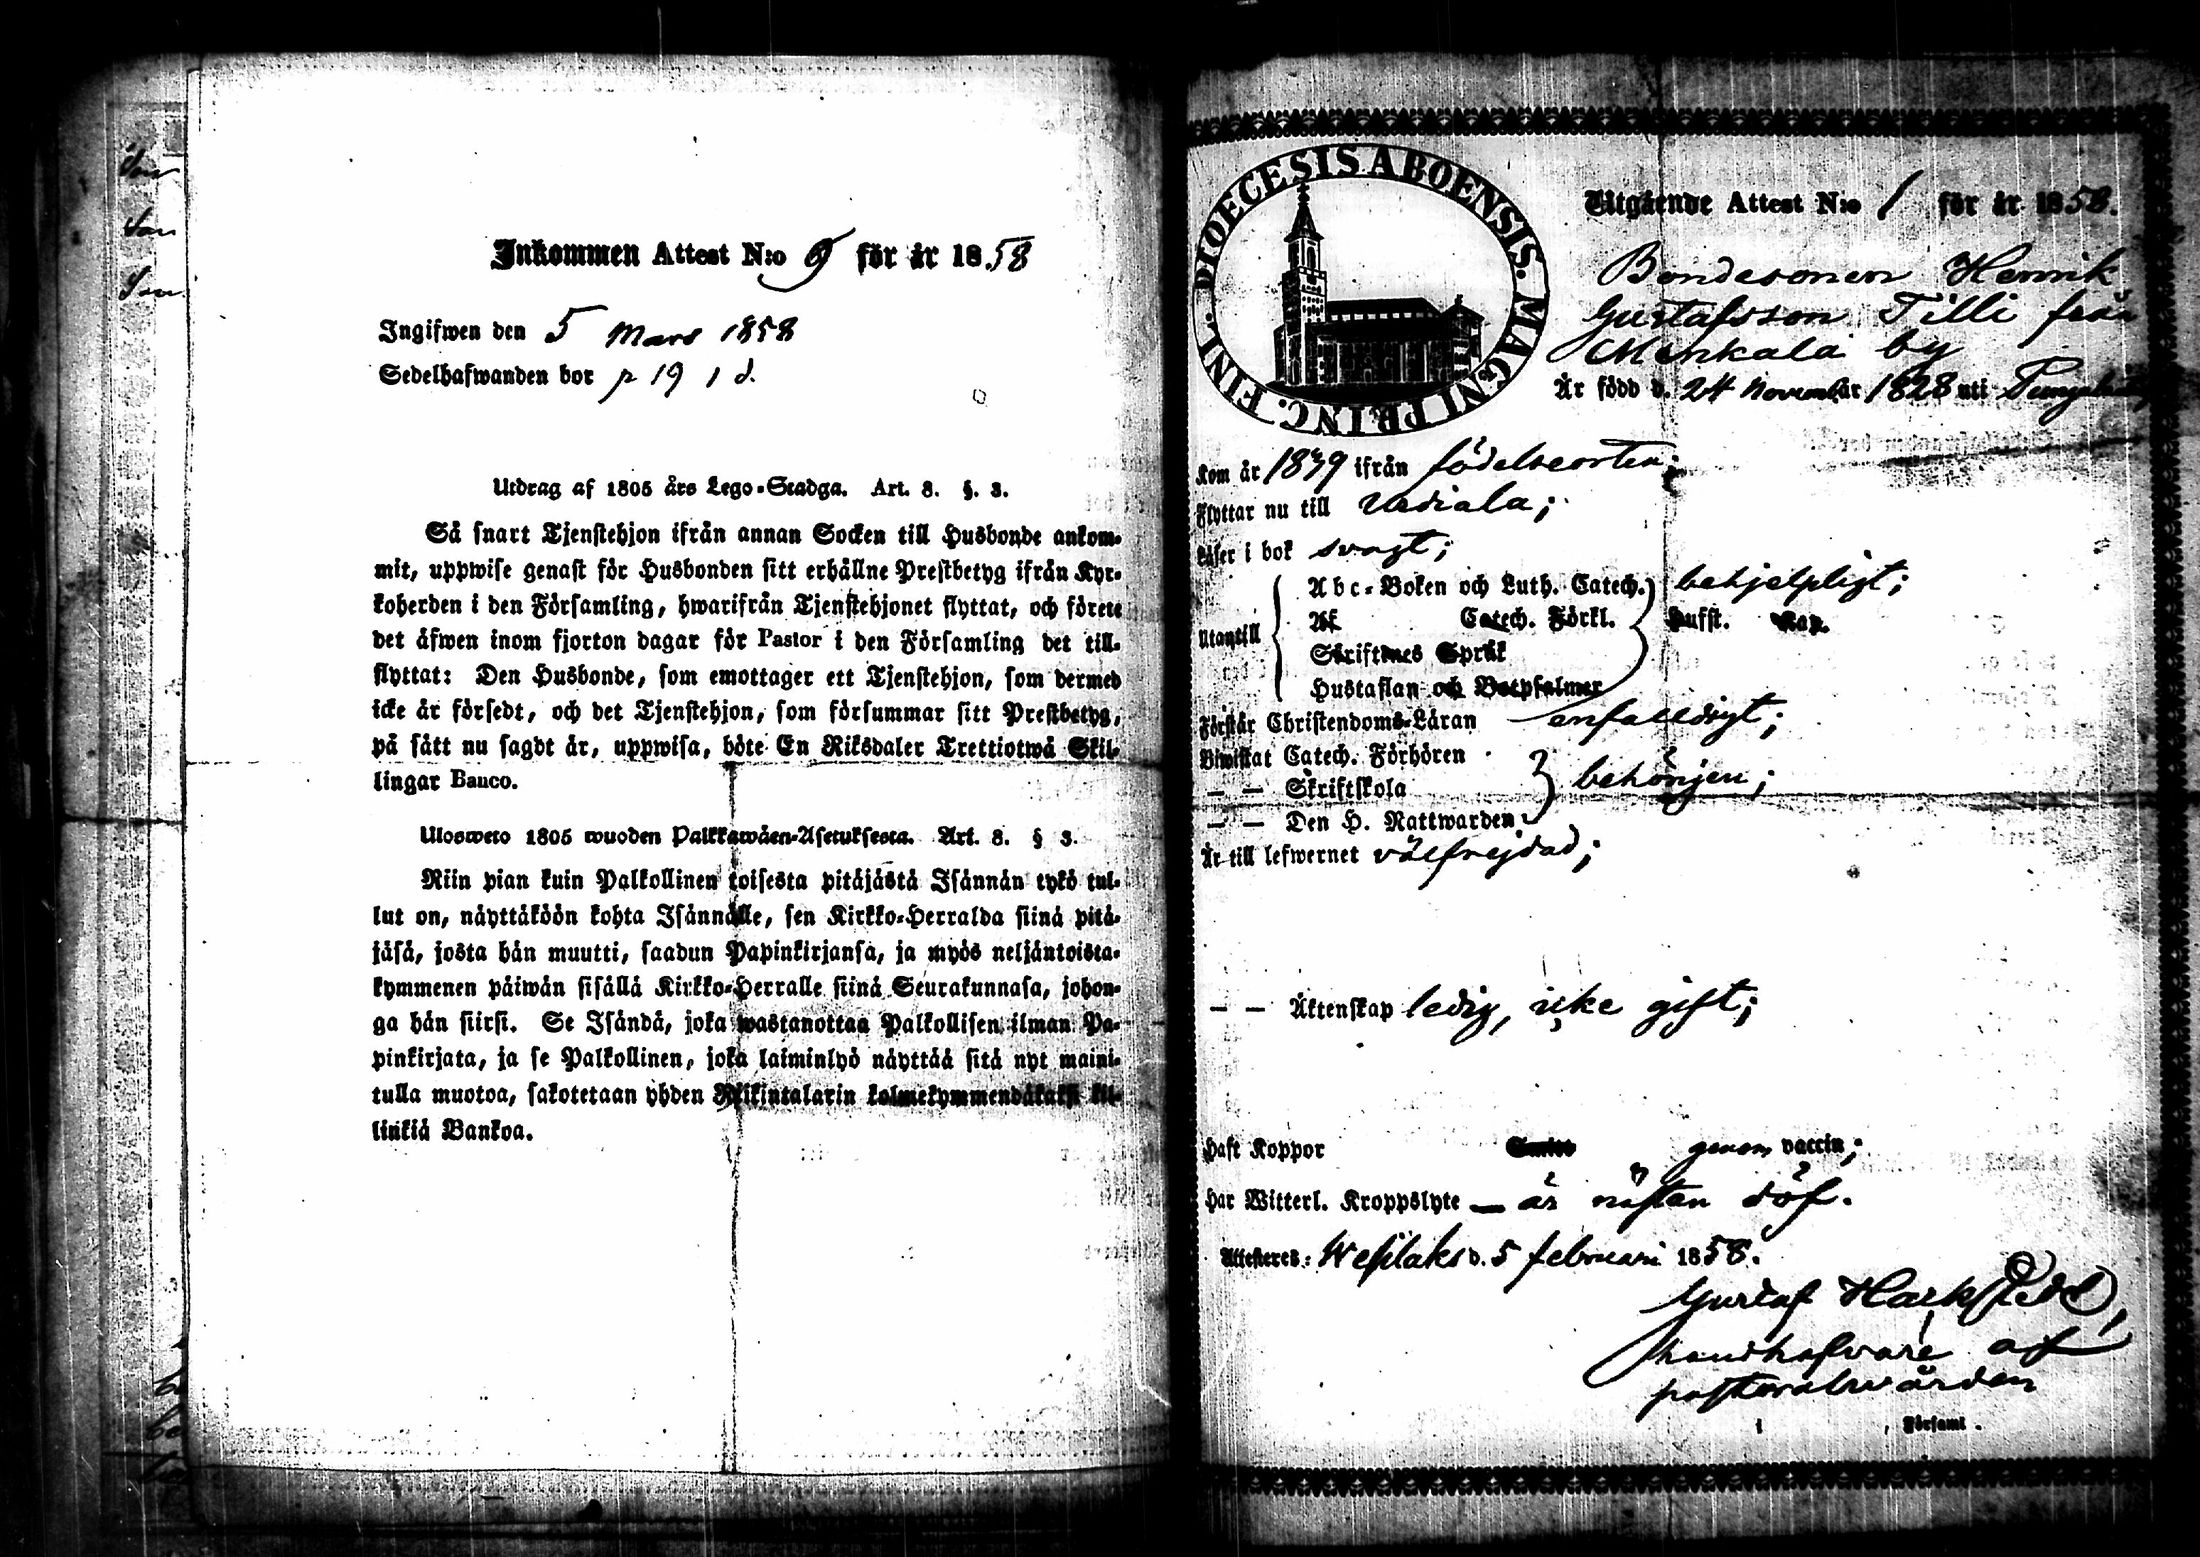 Inkommen Attest N:o 9 för år 1858
Ingifwen den 5 Mars 1858
Sedelhafwanden bor p 19 1 d.
Utdrag af 1805 års Lego-Stadga. Art. 8. §. 3.
Så snart Tjenstehjon ifrån annan Socken till Husbonde ankom-
mit, uppwise genast för Husbonden sitt erhållne Prestbetyg ifrån Kyr-
koherden i den Församling, hwarifrån Tjenstehjonet flyttat, och förete
det äfwen inom fjorton dagar för Pastor i den Församling det till-
flyttat: Den Husbonde, som emottager ett Tjenstehjon, som dermed
icke är försedt, och det Tjenstehjon, som försummar sitt Prestbetyg,
på sätt nu sagdt är, uppwisa, böte En Riksdaler Trettiotwå Skil-
lingar Banco.
Ulosweto 1805 wuoden Palkkawäen-Asetuksesta. Art. 8. § 3.
Niin pian kuin Palkollinen toisesta pitäjästä Isännän tykö tul-
lut on, näyttäköön kohta Isännälle, sen Kirkko-Herralda siinä pitä-
jäsä, josta hän muutti, saadun Papinkirjansa, ja myös neljäntoista-
kymmenen päiwän sisällä Kirkko-Herralle siinä Seurakunnasa, johon-
ga hän siirsi. Se Isändä, joka wastanottaa Palkollisen ilman Pa-
pinkirjata, ja se Palkollinen, joka laiminlyö näyttää sitä nyt maini-
tulla muotoa, sakotetaan yhden Riikintalarin kolmekymmendäkaksi kil-
linkiä Bankoa.
DIOECESIS ABOENSIS. MAGNI PRINC. FINL.
Utgående Attest N:o 1 för år 1858.
Bondesonen Henrik
Gustafsson Tilli från
Menkala by
Är född d. 24 Novemb år 1828 uti
Kom år 1839 ifrån födelseorten;
Flyttar nu till Uskiala;
Läser i bok svagt;
Utantill Abc-Boken och Luth. Catech. behjelpligt;
Af Catech. Förkl. Hufst. Kap.
Skriftenes Språk
Hustaflan och Botpsalmer
Förstår Christendoms-Läran enfaldigt;
Biwistat Catech. Förhören
— — Skriftskola behörigen;
— — Den H. Nattwarden
Är till lefwernet välfrejdad;
— — Äktenskap ledig, icke gift;
Haft Koppor genom vaccin;
Har Witterl. Kroppslyte — är nästan döf.
Attesteres: Westlaks d. 5 februari 1858.
Gustaf
handhafvare af
pastoralvården
i Församl.